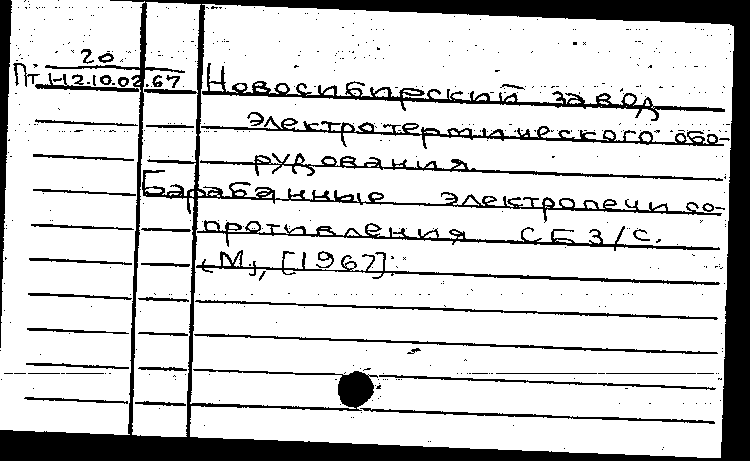 20
Пт.1-12.10.02.67
Новосибирский завод
электротермического обо-
рудования.
Барабанные электропечи со-
противления СБЗ/С.
[М], [1967].